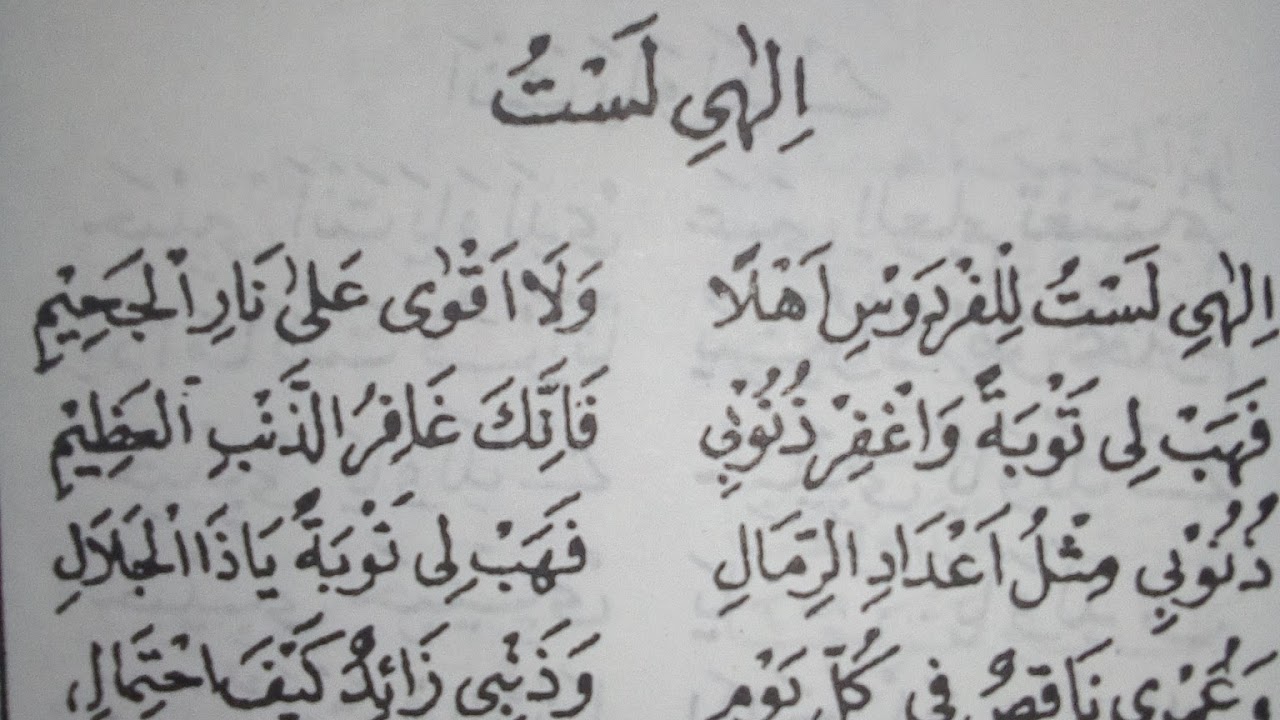 اِلٰهِي لَسْتُ
اِلٰهِي لَسْتُ لِلْفِرْدَوْسِ اَهْلًا وَلَا اَقْوٰى عَلىٰ نَارِ الْجَحِيْمِ
فَهَبْ لِى تَوْبَةً وَاغْفِرْ ذُنُوْبِي فَاِنَّكَ غَافِرُ الذَّنْبِ الْعَظِيْمِ
ذُنُوْبِي مِثْلُ اَعْدَادِ الرِّمَالِ فَهَبْ لِى تَوْبَةً يَاذَا الْجَلَالِ
وَعُمْرِى نَاقِصٌ فِى كُلِّ يَوْمٍ وَذَنْبِى زَائِدٌ كَيْفَ احْتِمَالِ